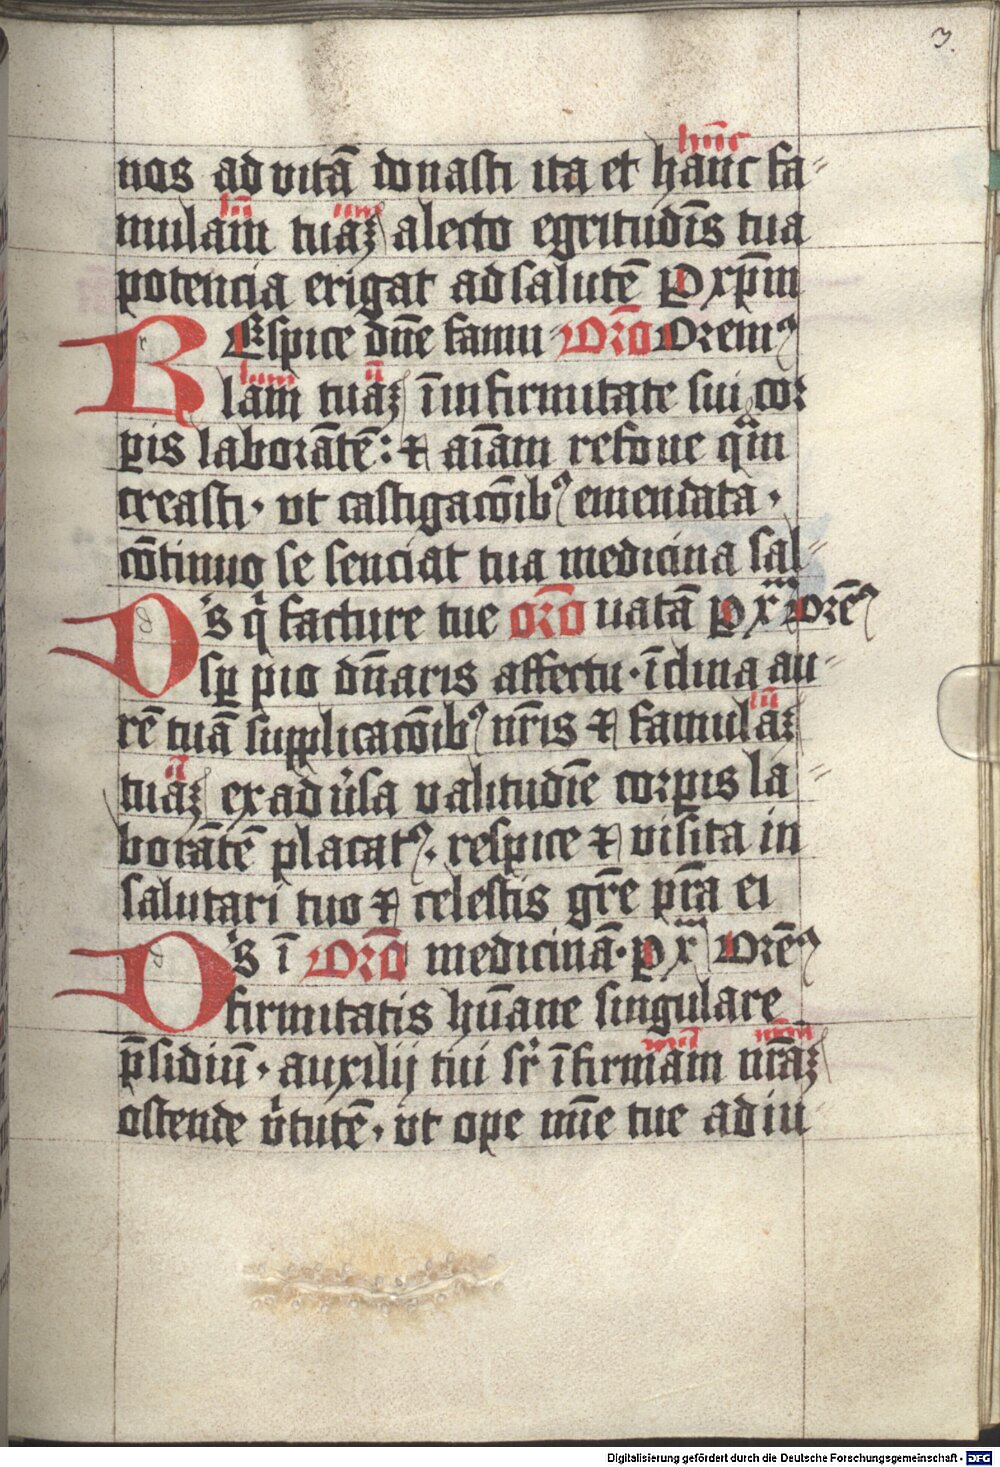 3.
hūc
nos ad vitā donasti ita et hanc fa⸗
lū ium
mulam̄ tuāʒ a lecto egritudīs tua
potencia erigat ad salutē ꝑ xp̄m
REspice dn̄e famu Orō Oremꝰ
lum ū
lam̄ tuāʒ ī infirmitate sui cor
ꝑis laborātē: ⁊ aīam refoue qͣm
creasti · vt castigacōibꝰ emendata ·
cōtinuo se senciat tua medicina sal⸗
Dꝰs qͥ facture tue orō uatā ꝑ xͫ Orēꝰ
sꝑ pio dn̄aris affectu · īclina au⸗
lū
rē tuā supplicacōibꝰ nr̄is ⁊ famulāʒ
ū
tuāʒ ex adu͛sa valitudīe corꝑis la⸗
borātē placatꝰ · respice ⁊ visita in
salutari tuo ⁊ celestis gr̄e pr̄a ei
Dꝰs ī Orō medicinā · ꝑ xͫ Orēꝰ
firmitatis hūane singulare
mū nr̄m
p̄sidiū · auxilij tui sr̄ īfirmam̄ nr̄āʒ
ostende v͛tutē · vt ope mīe tue adiu⸗
Digitalisierung gefördert durch die Deutsche Forschungsgemeinschaft - DFG